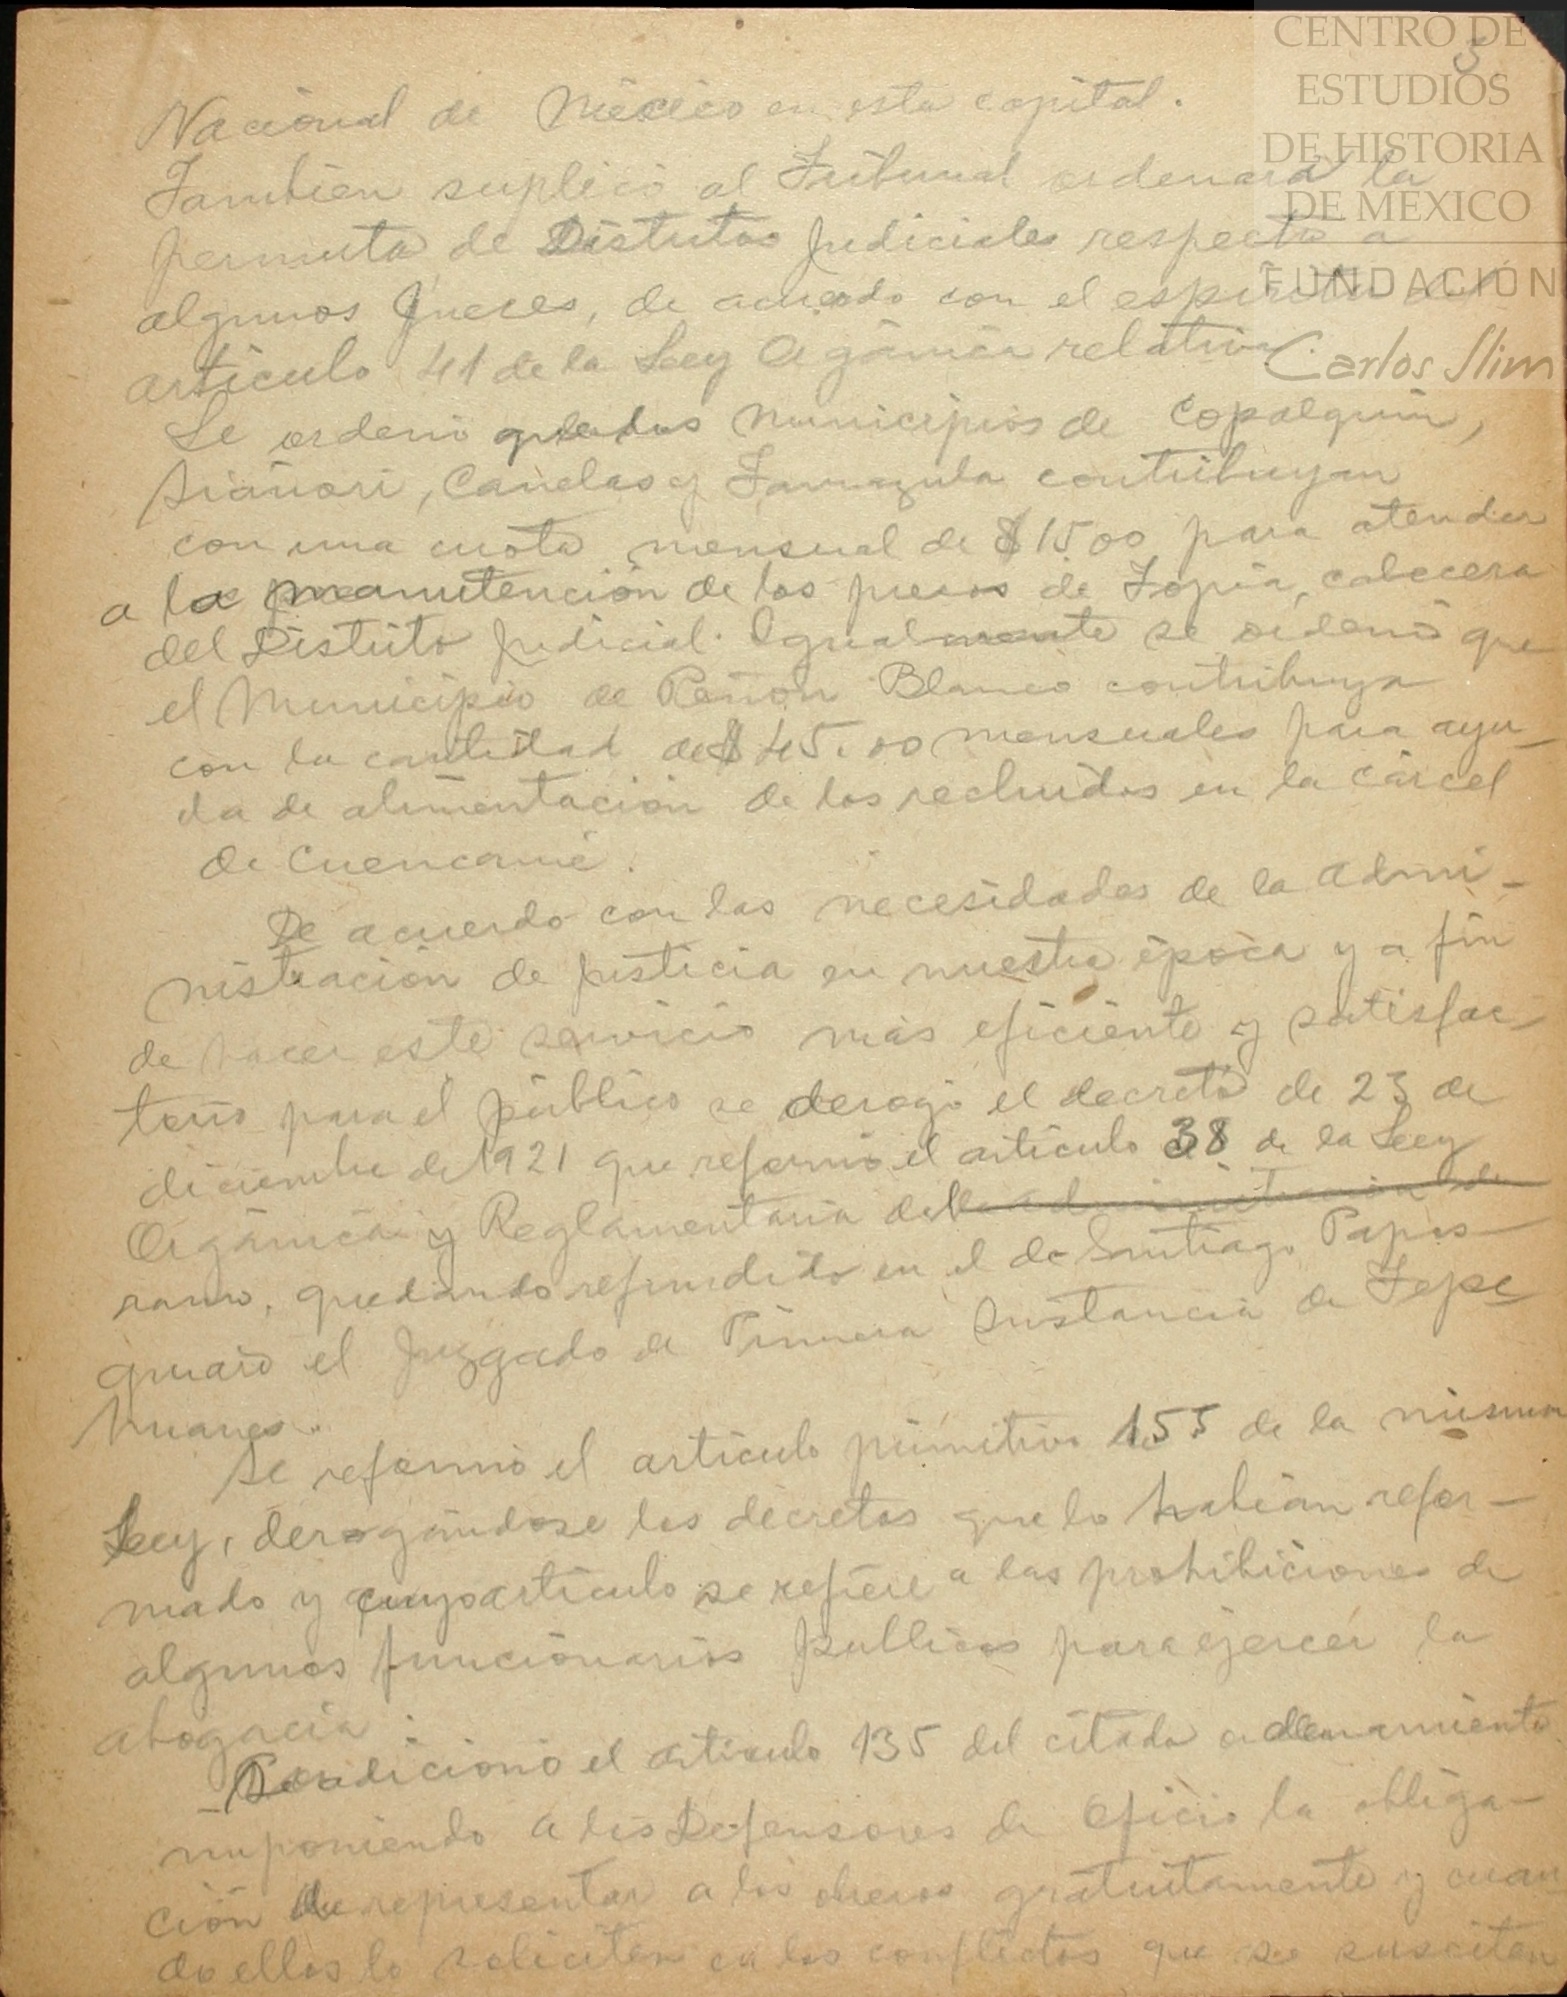 CENTRO DE
ESTUDIOS
DE HISTORIA
DE MÉXICO
FUNDACIÓN
Carlos Slim
Nacional de México en esta capital.
Tambien suplicó al Tribunal ordenara la
permuta de Distritos Judiciales respecto a
algunos Jueces, de acuerdo con el espíritu del
artículo 41 de la Ley Orgánica relativa.
Se ordenó que los Municipios de Copalquin,
Siánori, Canelas y Tamazula contribuyan
con una cuota mensual de $15.00 para atender
a la manutención de los presos de Topia, cabecera
del Distrito Judicial. Igualmente se ordenó que
el Municipio de Peñon Blanco contribuya
con la cantidad de $45.00 mensuales para ayu-
da de alimentación de los recluidos en la cárcel
de Cuencamé.
De acuerdo con las necesidades de la admi-
nistración de justicia en nuestra época y a fin
de hacer este servicio más eficiente y satisfac-
torio para el público se derogó el decreto de 23 de
diciembre de 1921 que reformó el artículo 38 de la Ley
Orgánica y Reglamentaria del la administración de
ramo, quedando refundido en el de Santiago Papas-
quiaro el Juzgado de Primera Instancia de Tepe
huanes.
Se reformó el artículo primitivo 155 de la misma
Ley, derogándose los decretos que lo habían refor-
mado y cuyo artículo se refiere a las prohibiciones de
algunos funcionarios públicos para ejercer la
abogacía.
Se adicionó el artículo 135 del citado ordenamiento
imponiendo a los Defensores de Oficio la obliga-
ción de representar a los obreros gratuitamente y cuan
do ellos lo soliciten en los conflictos que se susciten